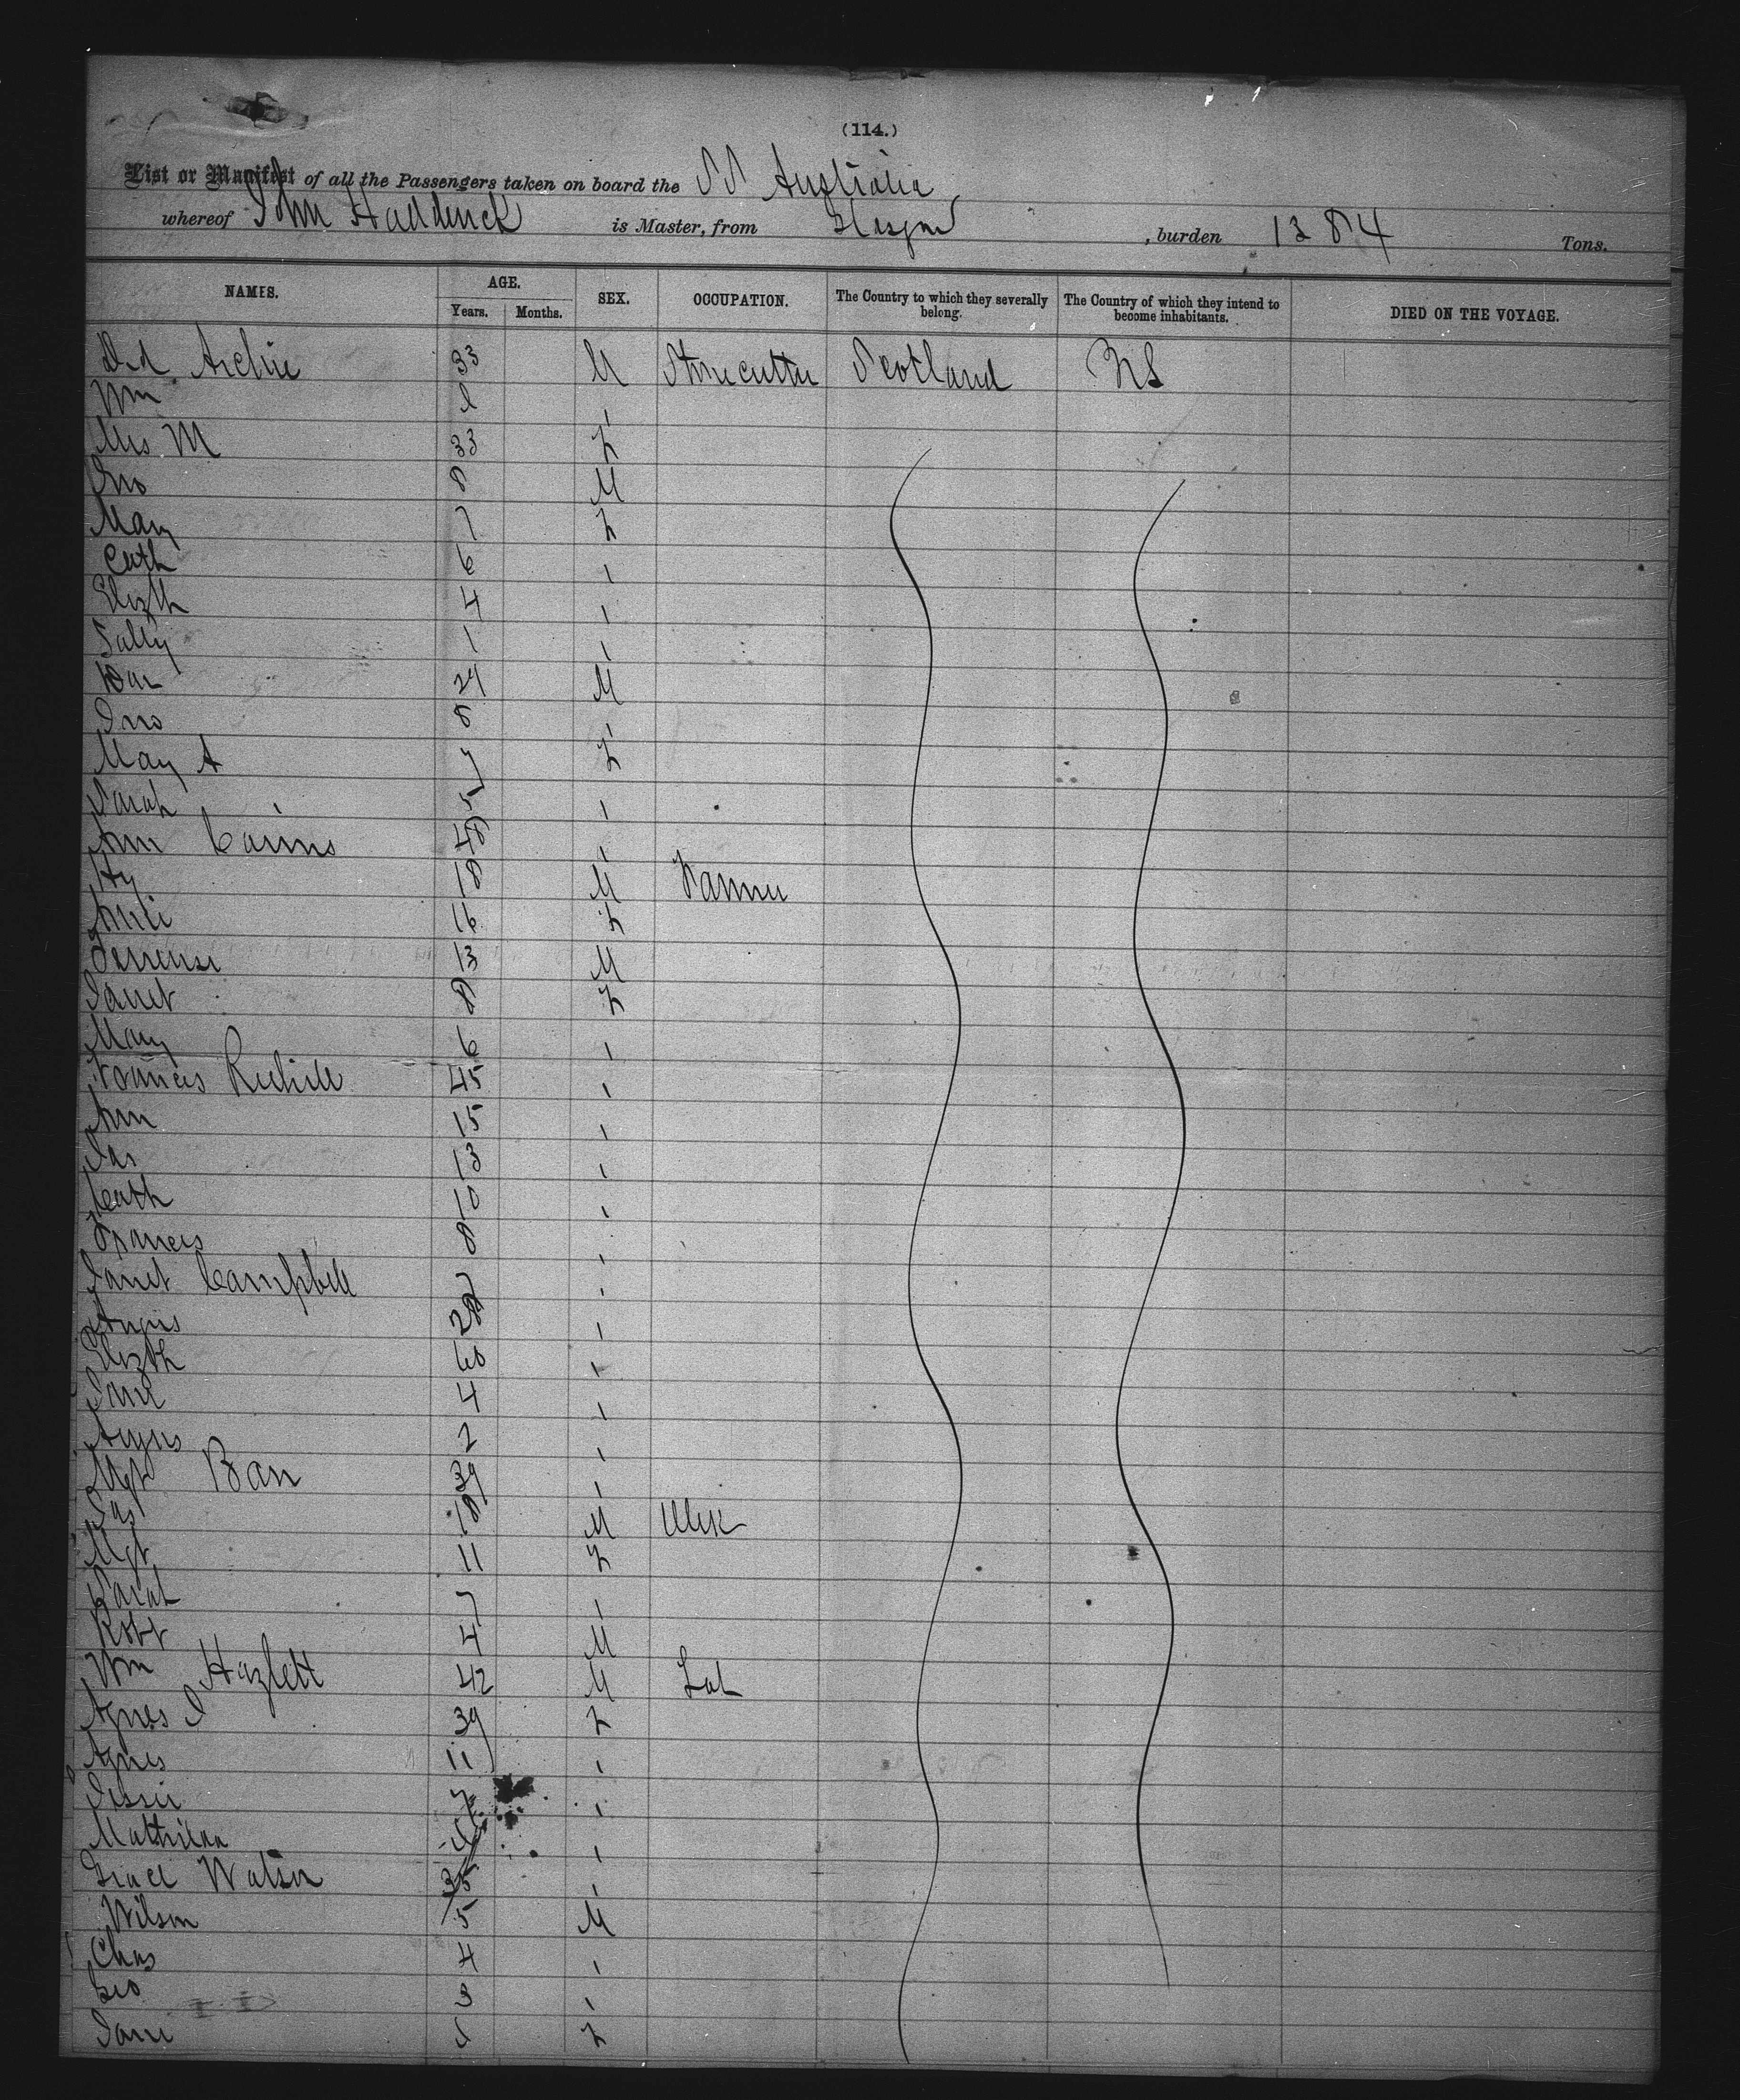 (114.)
List or Manifest of all the Passengers taken on board the SS Australia
whereof John Hadderick is Master, from Glasgow , burden 1384 Tons.
NAMES. AGE. SEX. OCCUPATION. The Country to which they severally belong. The Country of which they intend to become inhabitants. DIED ON THE VOYAGE.
Years. Months.
Dd Archie 33 M Stonecutter Scotland NS
Wm
Mrs M 33 F
Jno 8 M
Mary 7 F
Cath 6 "
Elizth 4 "
Sally 1 "
24 M
Jno 8 "
Mary A 7 F
Sarah 5 "
Ann Cairns 48 "
Hy 18 M Farmer
16 F
13 M
Janet 8 F
Mary 6 "
Francis 45 "
Ann 15 "
Jas 13 "
Cath 10 "
Francis 8 "
Janet Campbell 7 "
28 "
Elizth 60 "
Jane 4 "
2 "
Mgt Barr 39 "
Jas 18 M Clerk
Mgt 11 F
Sarah 7 "
Robt 4 M
Wm Hazlett 42 M Lab
Agnes J 39 F
Agnes 11 "
Jessie 7 "
"
Grace Watson 35 "
Wilson 5 M
Chas 4 "
Geo 3 "
Jane F